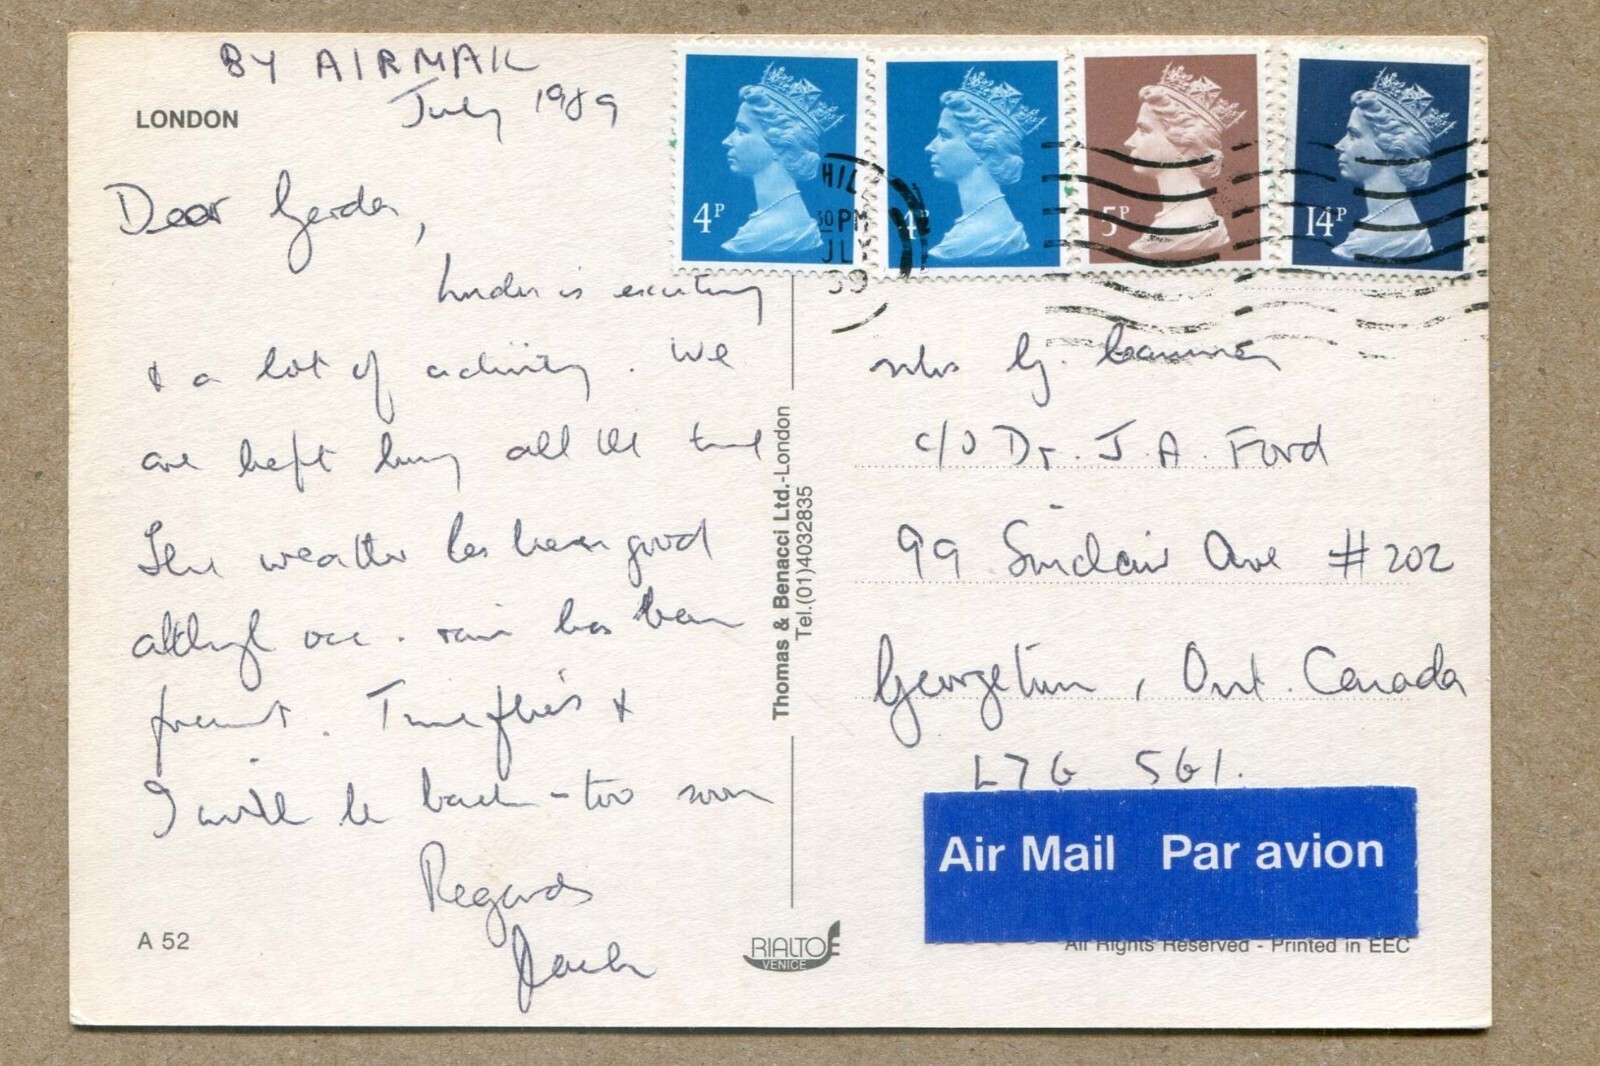 BY AIRMAIL
July 1989
LONDON
Dear Gerda,
London is exciting
& a lot of activity. We
are kept busy all the time
The weather has been good
although occ. rain has been
present. Time flies &
I will be back - too soon
Regards
Jack
A 52
4P
4P
5P
14P
HILL
30 PM
JLY
89
Thomas & Benacci Ltd.-London
Tel.(01)4032835
Mrs G.
c/o Dr. J. A. Ford
99 Sinclair Ave #202
Georgetown, Ont. Canada
L7G 5G1.
Air Mail Par avion
RIALTO
VENICE
All Rights Reserved - Printed in EEC